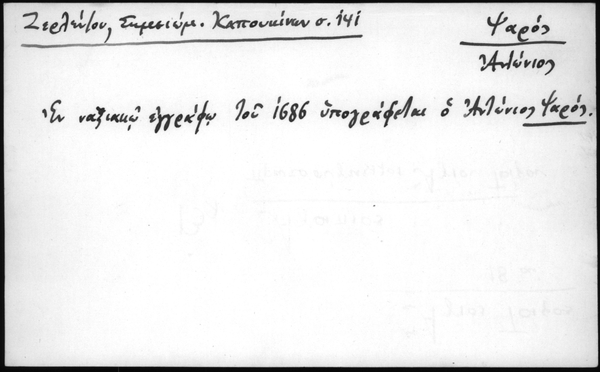 Ζερλέντου, Σημειώμ. Καπουκίνων σ. 141
Ψαρός
Ἀντώνιος
Ἐν ναξιακῷ ἐγγράφῳ τοῦ 1686 ὑπογράφεται ὁ Ἀντώνιος Ψαρός.